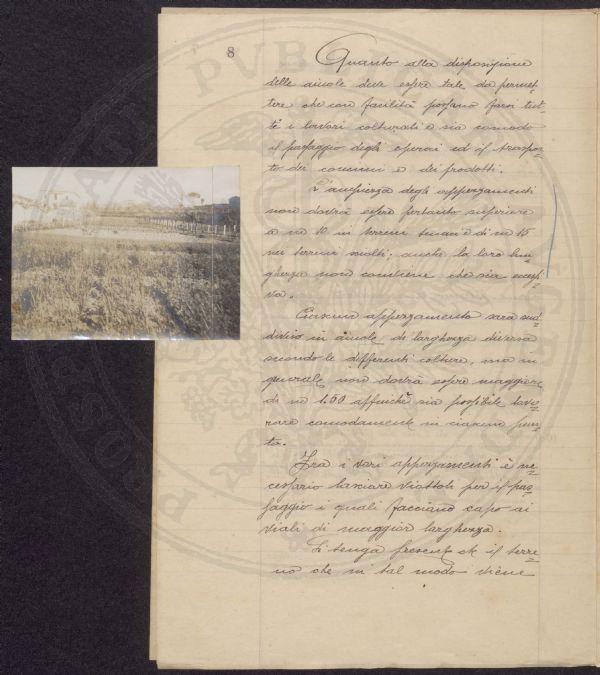 8
Quanto alla disposizione
delle aiuole deve essere tale da permet-
tere che con facilità possano farsi tut-
te i lavori colturali e sia comodo
il passaggio degli operai ed il traspor-
to dei concimi e dei prodotti.
L'ampiezza degli appezzamenti
non dovrà essere pertanto superiore
a m 10 in terreni tenaci e di m 15
nei terreni sciolti; anche la loro lun-
ghezza non conviene che sia ecces-
va.
Ciascun appezzamento sarà sud-
diviso in aiuole di larghezza diversa
secondo le differenti colture, ma in
generale non dovrà essere maggiore
di m 1.50 affinchè sia possibile lavo-
rare comodamente in ciascun pun-
to.
Fra i vari appezzamenti è ne-
cessario lasciare viottoli per il pas-
saggio i quali facciano capo ai
viali di maggior larghezza.
Si tenga presente che il terre-
no che in tal modo viene
PVBLIC